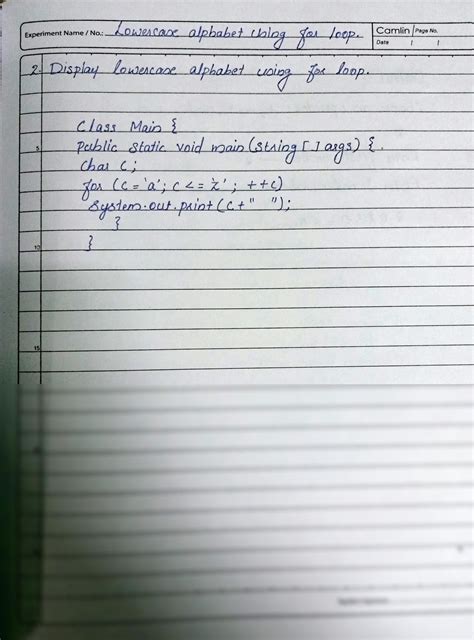 Experiment Name / No.: Lowercase alphabet Using for loop.
Camlin Page No.
Date / /
2. Display lowercase alphabet using for loop.
Class Main {
5 Public static void main (String [ ] args) {.
Char C;
for (C = 'a'; C <= 'z'; ++C)
System.out.print (C + " ");
}
10 }
15